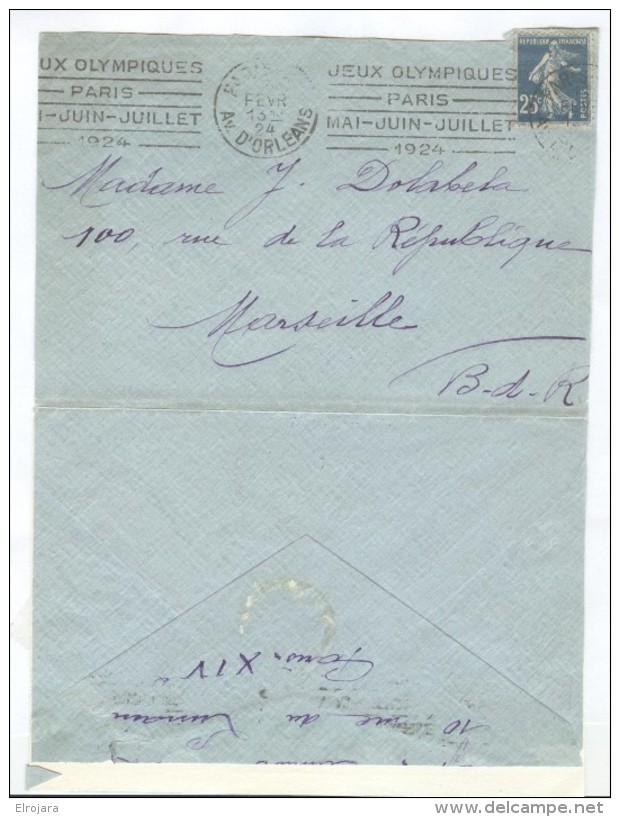 JEUX OLYMPIQUES
PARIS
MAI-JUIN-JUILLET
1924
FEVR
13
24
AV. D'ORLEANS
JEUX OLYMPIQUES
PARIS
MAI-JUIN-JUILLET
1924
REPUBLIQUE FRANÇAISE
25c
POSTES
Madame J. Dolabela
100, rue de la République
Marseille
B-d-R.
10 rue du
Paris. XIV e
Elrojara
delcampe.net